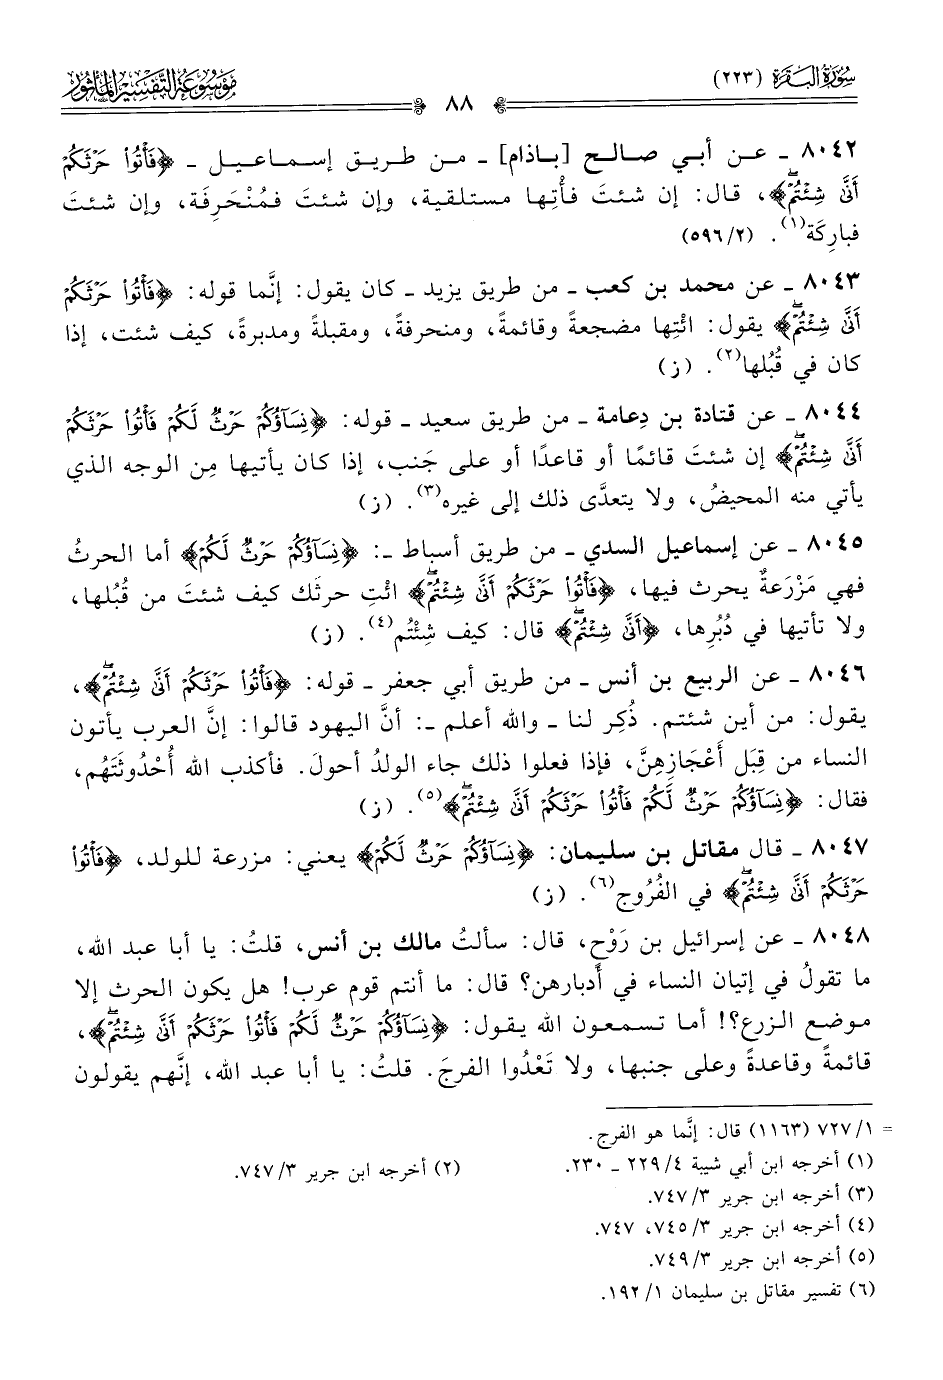 سُورَةُ البَقَرَة (٢٢٣)
٨٨
مَوْسُوعَة التَّفْسِير المَأثُور
٨٠٤٢ ـ عن أبي صالح [باذام] ـ من طريق إسماعيل ـ ﴿فَأْتُوا۟ حَرْثَكُمْ
أَنَّىٰ شِئْتُمْ﴾، قال: إن شئتَ فأْتِها مستلقية، وإن شئتَ فمُنْحَرِفَة، وإن شئتَ
فبارِكَة(١). (٢/ ٥٩٦)
٨٠٤٣ ـ عن محمد بن كعب ـ من طريق يزيد ـ كان يقول: إنَّما قوله: ﴿فَأْتُوا۟ حَرْثَكُمْ
أَنَّىٰ شِئْتُمْ﴾ يقول: ائْتِها مضجعةً وقائمةً، ومنحرفةً، ومقبلةً ومدبرةً، كيف شئت، إذا
كان في قُبُلها(٢). (ز)
٨٠٤٤ ـ عن قتادة بن دِعامة ـ من طريق سعيد ـ قوله: ﴿نِسَآؤُكُمْ حَرْثٌ لَّكُمْ فَأْتُوا۟ حَرْثَكُمْ
أَنَّىٰ شِئْتُمْ﴾ إن شئتَ قائمًا أو قاعدًا أو على جَنب، إذا كان يأتيها مِن الوجه الذي
يأتي منه المحيضُ، ولا يتعدَّى ذلك إلى غيره(٣). (ز)
٨٠٤٥ ـ عن إسماعيل السدي ـ من طريق أسباط ـ: ﴿نِسَآؤُكُمْ حَرْثٌ لَّكُمْ﴾ أما الحرثُ
فهي مَزْرَعةٌ يحرث فيها، ﴿فَأْتُوا۟ حَرْثَكُمْ أَنَّىٰ شِئْتُمْ﴾ ائْتِ حرثَك كيف شئتَ من قُبُلها،
ولا تأتيها في دُبُرِها، ﴿أَنَّىٰ شِئْتُمْ﴾ قال: كيف شِئْتُم(٤). (ز)
٨٠٤٦ ـ عن الربيع بن أنس ـ من طريق أبي جعفر ـ قوله: ﴿فَأْتُوا۟ حَرْثَكُمْ أَنَّىٰ شِئْتُمْ﴾،
يقول: من أين شئتم. ذُكِر لنا ـ والله أعلم ـ: أنَّ اليهود قالوا: إنَّ العرب يأتون
النساء من قِبَل أَعْجَازِهِنَّ، فإذا فعلوا ذلك جاء الولدُ أحولَ. فأكذب الله أُحْدُوثَتَهُم،
فقال: ﴿نِسَآؤُكُمْ حَرْثٌ لَّكُمْ فَأْتُوا۟ حَرْثَكُمْ أَنَّىٰ شِئْتُمْ﴾(٥). (ز)
٨٠٤٧ ـ قال مقاتل بن سليمان: ﴿نِسَآؤُكُمْ حَرْثٌ لَّكُمْ﴾ يعني: مزرعة للولد، ﴿فَأْتُوا۟
حَرْثَكُمْ أَنَّىٰ شِئْتُمْ﴾ في الفُرُوج(٦). (ز)
٨٠٤٨ ـ عن إسرائيل بن رَوْح، قال: سألتُ مالك بن أنس، قلتُ: يا أبا عبد الله،
ما تقولُ في إتيان النساء في أدبارهن؟ قال: ما أنتم قوم عرب! هل يكون الحرث إلا
موضع الزرع؟! أما تسمعون الله يقول: ﴿نِسَآؤُكُمْ حَرْثٌ لَّكُمْ فَأْتُوا۟ حَرْثَكُمْ أَنَّىٰ شِئْتُمْ﴾،
قائمةً وقاعدةً وعلى جنبها، ولا تَعْدُوا الفرجَ. قلتُ: يا أبا عبد الله، إنَّهم يقولون
= ١/ ٧٢٧ (١١٦٣) قال: إنَّما هو الفرج.
(١) أخرجه ابن أبي شيبة ٤/ ٢٢٩ ـ ٢٣٠.
(٢) أخرجه ابن جرير ٣/ ٧٤٧.
(٣) أخرجه ابن جرير ٣/ ٧٤٧.
(٤) أخرجه ابن جرير ٣/ ٧٤٥، ٧٤٧.
(٥) أخرجه ابن جرير ٣/ ٧٤٩.
(٦) تفسير مقاتل بن سليمان ١/ ١٩٢.